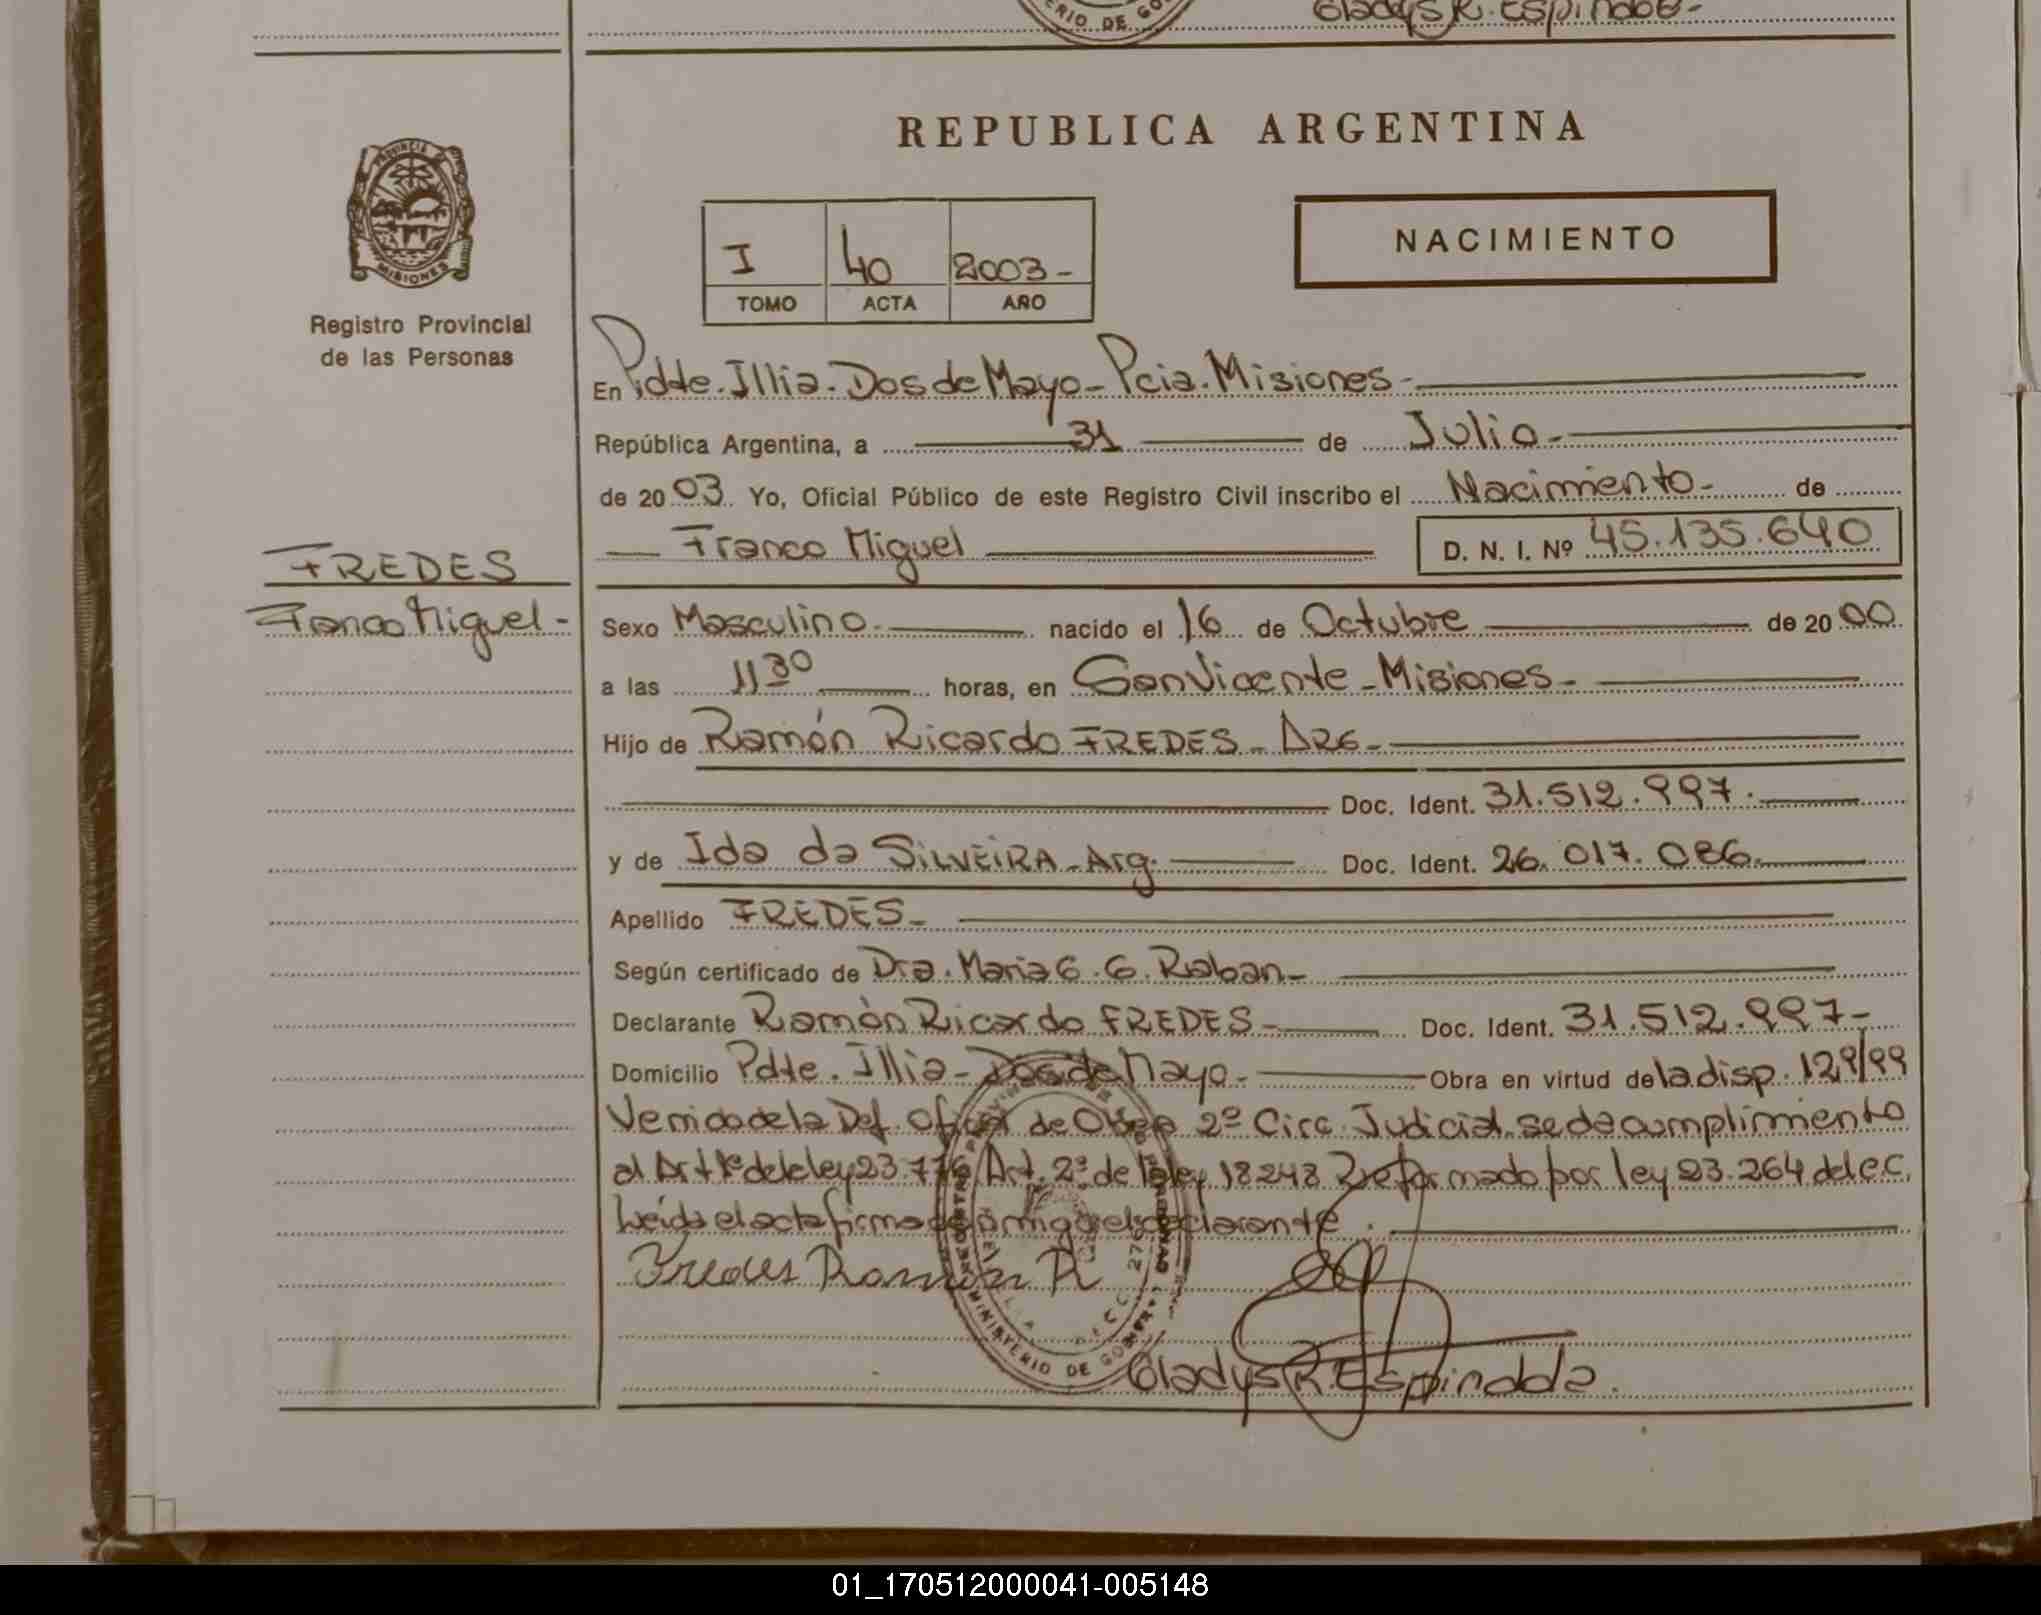 Gladys R. Espindola-
REPUBLICA ARGENTINA
PROVINCIA DE
MISIONES
Registro Provincial
de las Personas
I 40 2003-
TOMO ACTA AÑO
NACIMIENTO
En Pdte. Illia. Dos de Mayo - Pcia. Misiones-
República Argentina, a 31 de Julio-
de 2003 Yo, Oficial Público de este Registro Civil inscribo el Nacimiento- de
Franco Miguel D. N. I. Nº 45.135.640
FREDES
Franco Miguel-
Sexo Masculino- nacido el 16 de Octubre de 2000
a las 11 30 horas, en San Vicente - Misiones-
Hijo de Ramón Ricardo FREDES - ARG-
Doc. Ident. 31.512.997.
y de Ida da SILVEIRA - Arg. Doc. Ident. 26.017.086.
Apellido FREDES-
Según certificado de Dra. Maria G. G. Raban-
Declarante Ramón Ricardo FREDES- Doc. Ident. 31.512.997-
Domicilio Pdte. Illia - Dos de Mayo- Obra en virtud de la disp. 129/99
Venida de la Def. Oficial de Obera 2º Circ. Judicial. se da cumplimiento
al Art 1º de la ley 23.776 Art. 2º de la ley 18248 Reformado por ley 23.264 del c.c.
Leida el acta firma conmigo el declarante.
Fredes Ramón R
MINISTERIO DE GOBIERNO
Gladys R. Espindola.
01_170512000041-005148